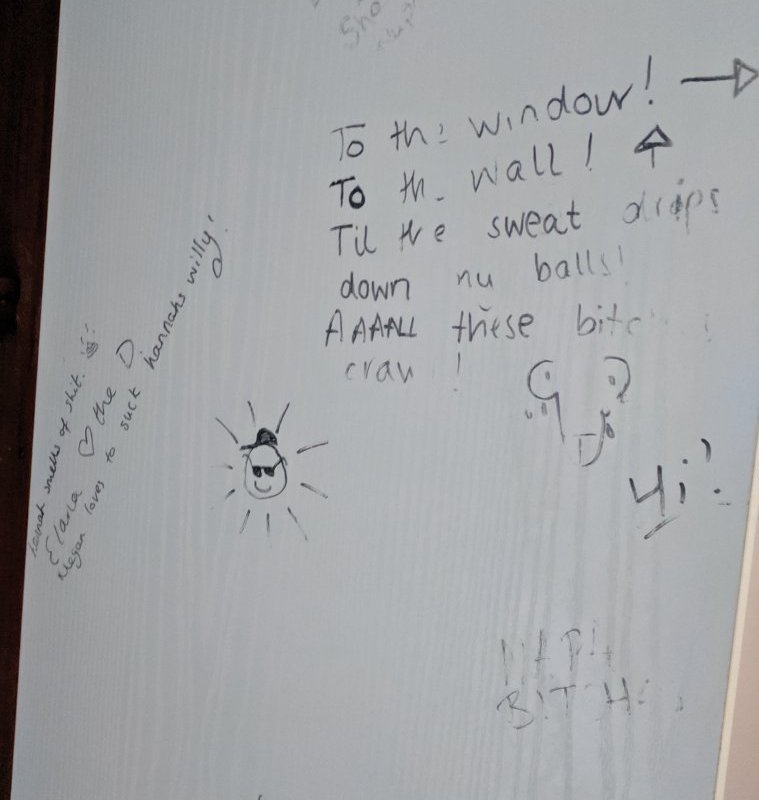 Sho
To the window!
To th. wall!
Til the sweat drips
down nu balls!
AAAALL these bitc
craw !
Hi!
smells of shit.
Clarla ♡ the D
Megan loves to suck hannahs willy!